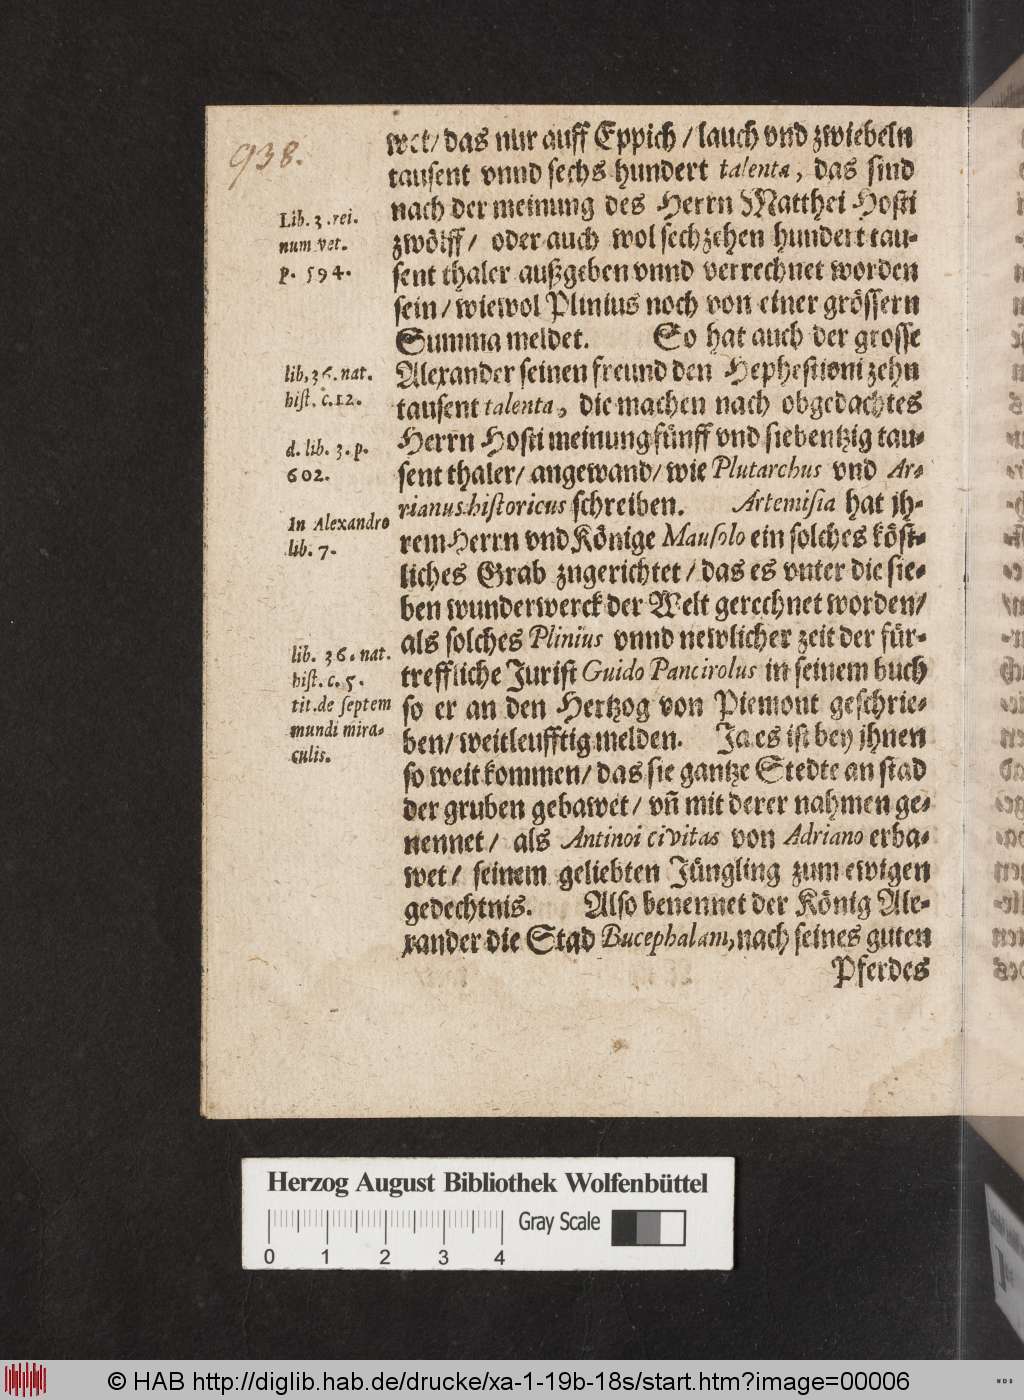 938.
wet/ das nur auff Eppich / lauch vnd zwiebeln
tausent vnnd sechs hundert talenta, das sind
nach der meinung des Herrn Matthei Hosti
zwölff/ oder auch wol sechzehen hundert tau-
sent thaler außgeben vnnd verrechnet worden
sein / wiewol Plinius noch von einer grössern
Summa meldet. So hat auch der grosse
Alexander seinen freund den Hephestioni zehn
tausent talenta, die machen nach obgedachtes
Herrn Hosti meinung fünff vnd siebentzig tau-
sent thaler/ angewand/ wie Plutarchus vnd Ar-
rianus historicus schreiben. Artemisia hat jh-
rem Herrn vnd Könige Mausolo ein solches köst-
liches Grab zugerichtet / das es vnter die sie-
ben wunderwerck der Welt gerechnet worden/
als solches Plinius vnnd newlicher zeit der für-
treffliche Jurist Guido Pancirolus in seinem buch
so er an den Hertzog von Piemont geschrie-
ben/ weitleufftig melden. Ja es ist bey jhnen
so weit kommen/ das sie gantze Stedte an stad
der gruben gebawet/ vñ mit derer nahmen ge-
nennet/ als Antinoi civitas von Adriano erba-
wet/ seinem geliebten Jüngling zum ewigen
gedechtnis. Also benennet der König Ale-
xander die Stad Bucephalam, nach seines guten
Pferdes
Lib. 3. rei.
num vet.
p. 594.
lib. 36. nat.
hist. c. 12.
d. lib. 3. p.
602.
In Alexandro
lib. 7.
lib. 36. nat.
hist. c. 5.
tit. de septem
mundi mira-
culis.
Herzog August Bibliothek Wolfenbüttel
Gray Scale
0 1 2 3 4
© HAB http://diglib.hab.de/drucke/xa-1-19b-18s/start.htm?image=00006